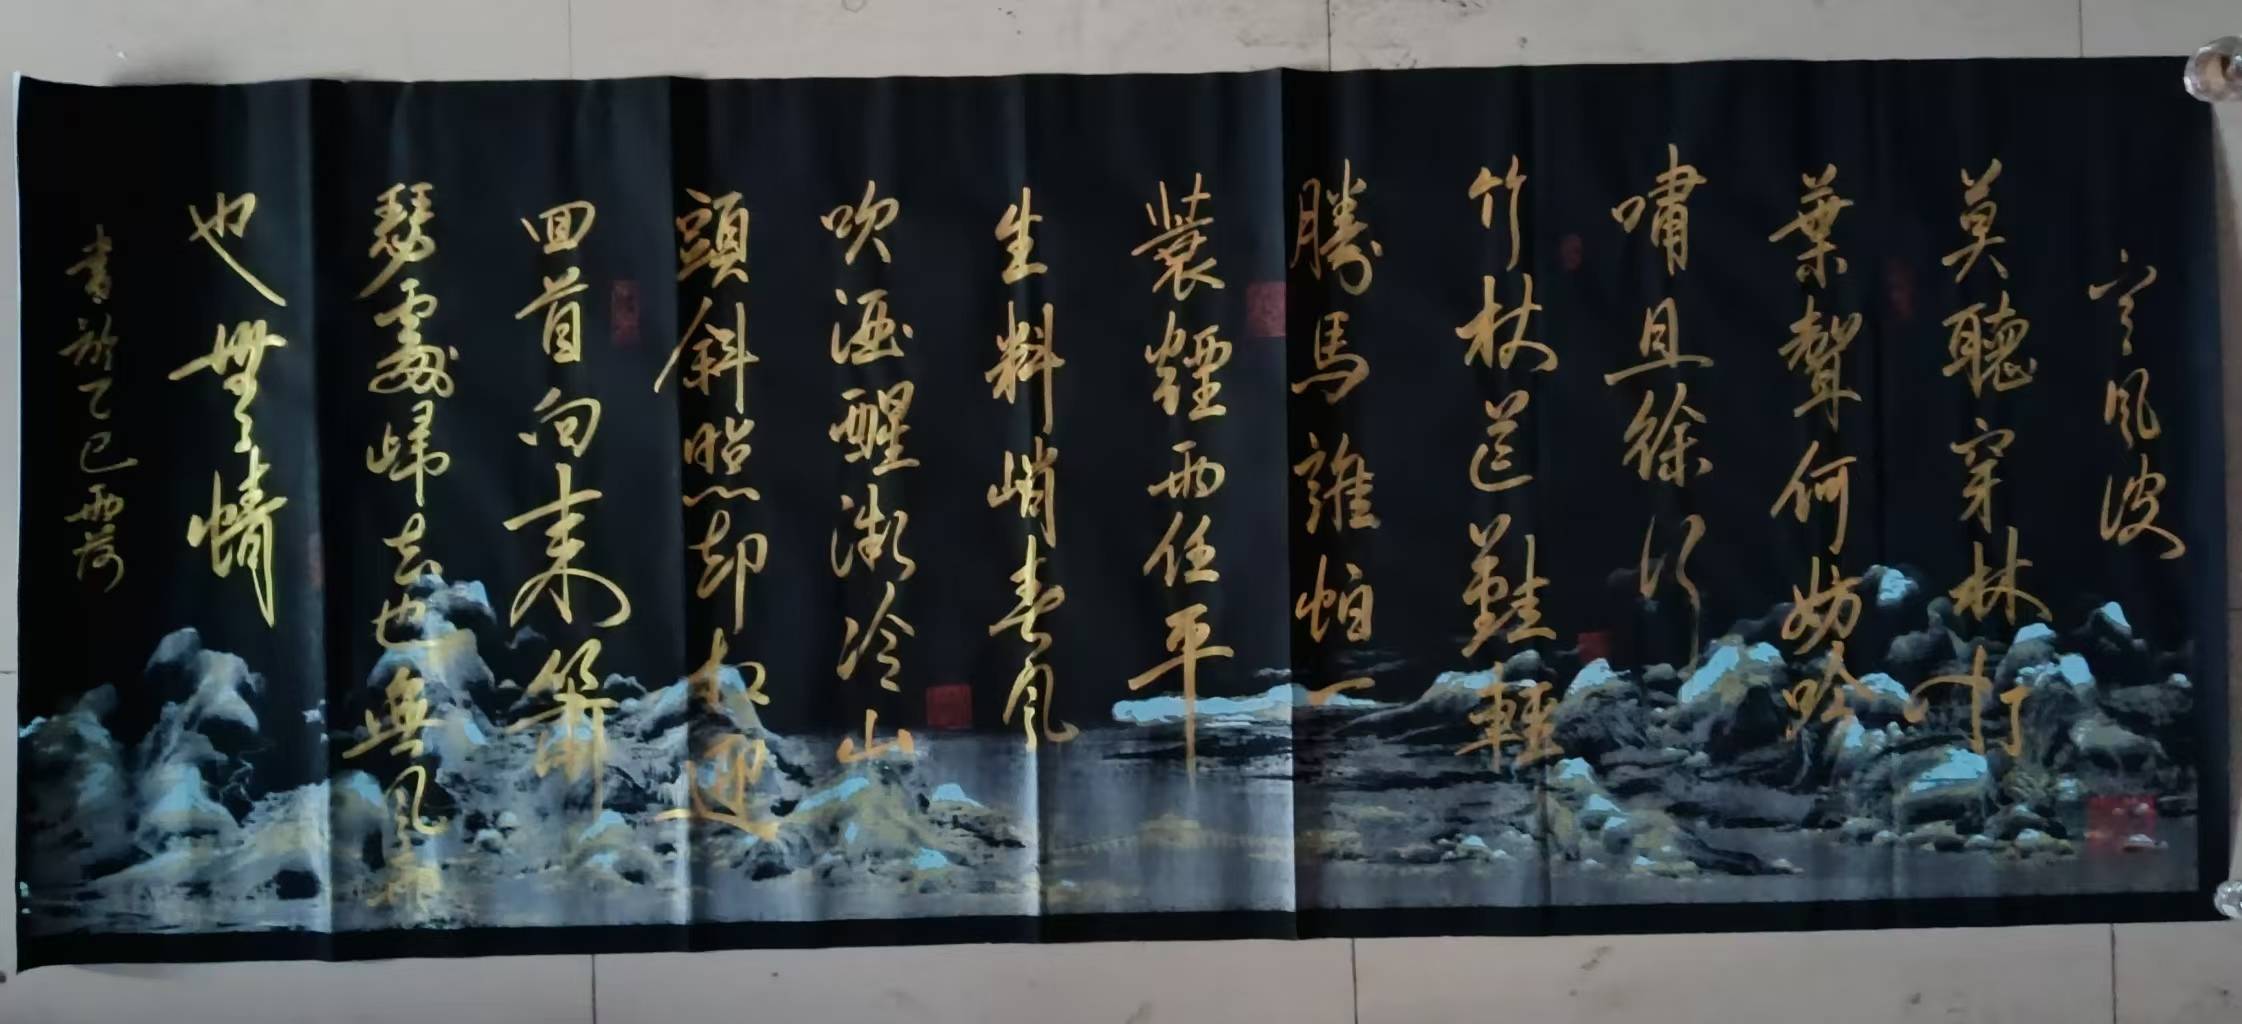 定風波
莫聽穿林打
葉聲何妨吟
嘯且徐行
竹杖芒鞋輕
勝馬誰怕一
蓑煙雨任平
生料峭春風
吹酒醒微冷山
頭斜照却相迎
回首向来蕭
瑟處歸去也無風雨
也無情
書於乙巳雨荷